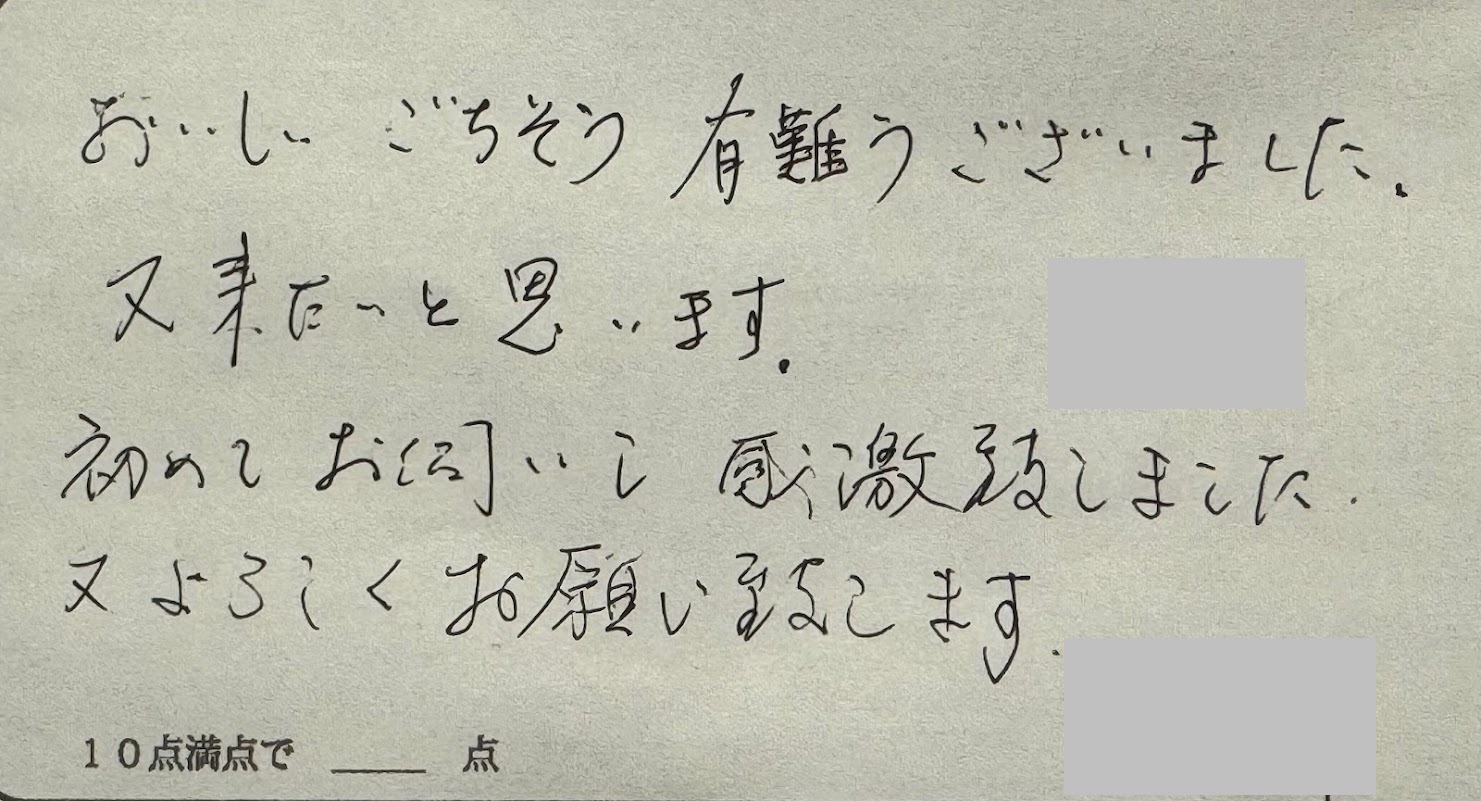 おいしい ごちそう 有難うございました.
又来たいと思います.
初めてお伺いし 感激致しました.
又よろしくお願い致します.
10点満点で ____ 点